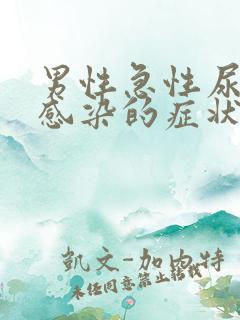 男性急性尿
感染的症状
凱文-加內特
未经同意禁止转载